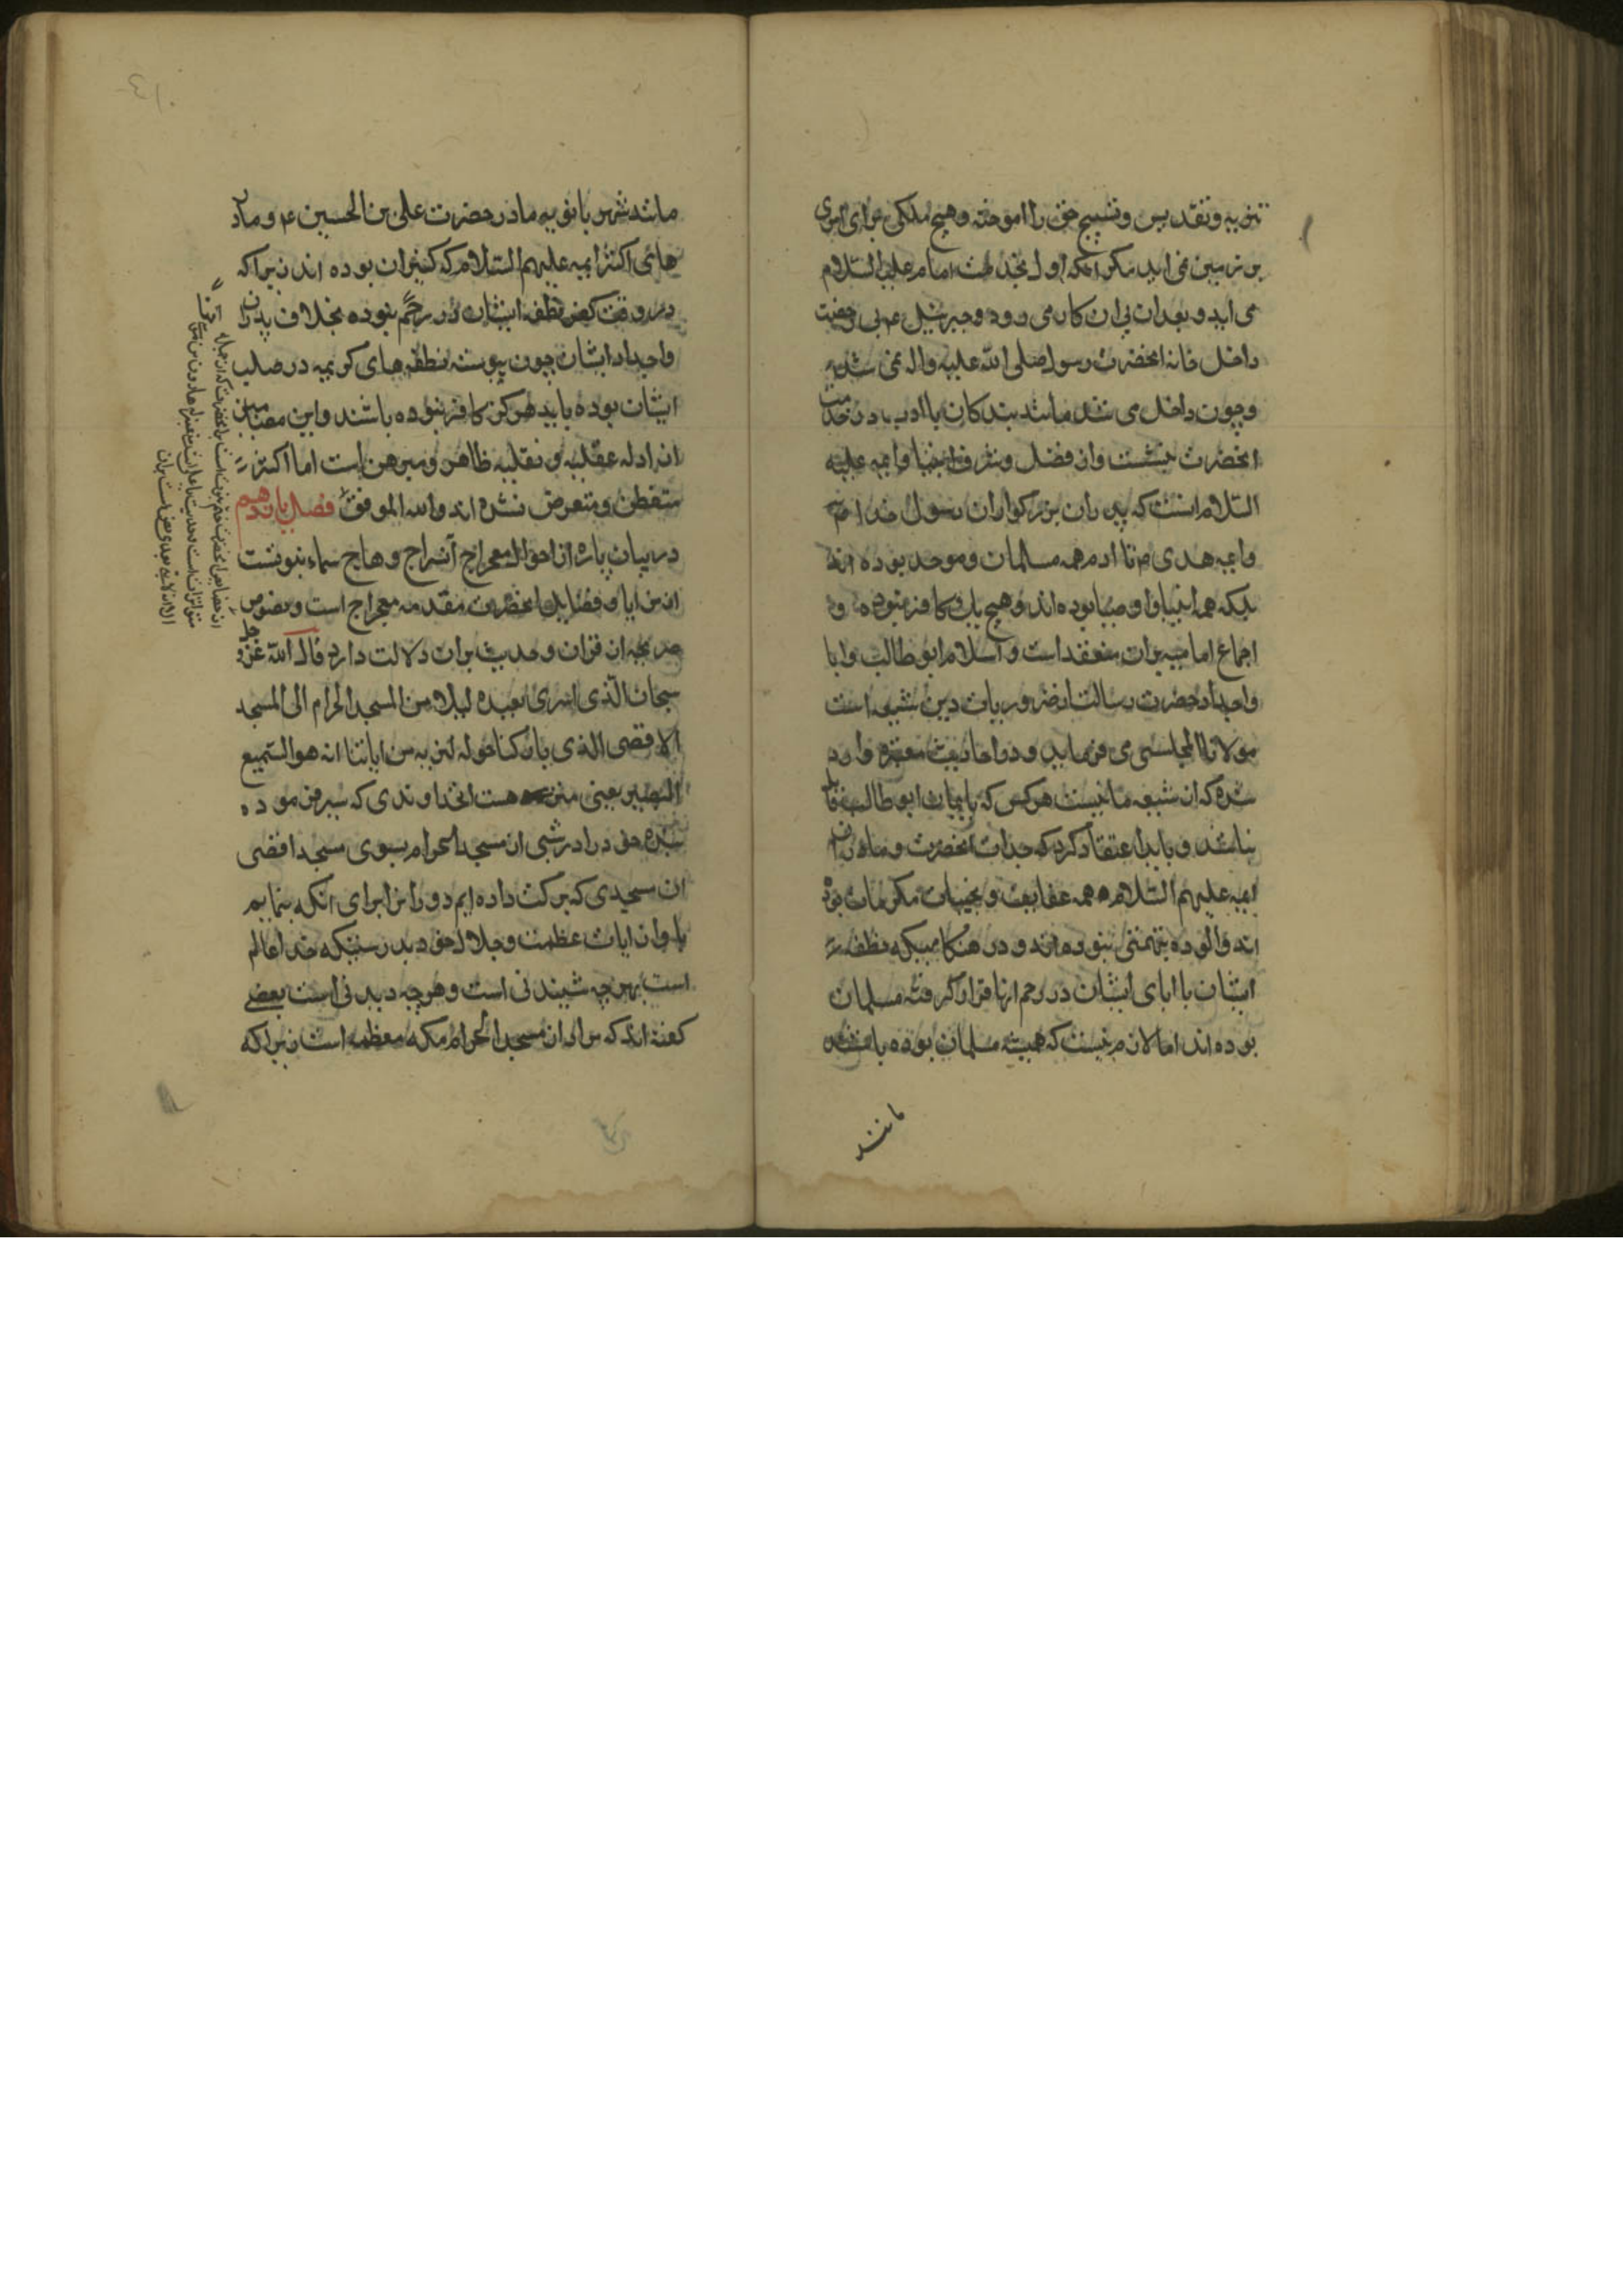 تنزیه و تقدیس و تسبیح حق را اموخته و هیچ ملکی برای امری
بر زمین نمی اید مکر انکه اول بخدمت امام علیه السلام
می اید و بعد ازان پی ان کار می رود و جبرئیل ع بی رخصت
داخل خانه انحضرت رسول صلی الله علیه واله نمی شد
و چون داخل می شد مانند بندکان با ادب در خدمت
انحضرت می نشست و از فضل و شرف انبیا و ایمه علیه
السلام انست که پدران بزرکواران رسول خدا ص
و ایمه هدی ع تا ادم همه مسلمان و موحد بوده اند
بلکه همه انبیا و اوصیا بوده اند و هیچ یک کافر نبوده و
اجماع امامیه بران منعقد است و اسلام ابو طالب و ابا
و اجداد حضرت رسالت از ضروریات دین شیعه است
مولانا المجلسی می فرماید و در احادیث معتبره وارد
شده که از شیعه ما نیست هر کس که بایمان ابو طالب قایل
نباشد و باید اعتقاد کرد که جدات انحضرت و مادران
ایمه علیهم السلام همه عفایف و نجیبات مکرمات بوده
اند و الوده بتهمتی نبوده اند و در هنکامیکه نطفه
ایشان با ابای ایشان در رحم انها قرار کرفته مسلمان
بوده اند اما لازم نیست که همیشه مسلمان بوده باشند
مانند
مانند شهربانویه مادر حضرت علی بن الحسین ع و مادر
های اکثر ایمه علیهم السلام که کنیزان بوده اند زیرا که
در وقت کفر نطفه ایشان در رحم نبوده بخلاف پدران
و اجداد ایشان چون پیوسته نطفه های کریمه در صلب
ایشان بوده باید هرکز کافر نبوده باشند و این مضامین
از ادله عقلیه و نقلیه ظاهر و مبرهن است اما اکثر
متفطن و متعرض نشده اند والله الموفق فصل یازدهم
در بیان پاره از احوال معراج سراج وهاج سماء نبوتست
از مزایا و فضایل انحضرت مقدمه معراج است و نصوص
صریحه از قران و حدیث بران دلالت دارد قال الله عز و جل
سبحان الذی اسری بعبده لیلا من المسجد الحرام الی المسجد
الاقصی الذی بارکنا حوله لنریه من ایاتنا انه هو السمیع
البصیر یعنی منزه هست انخداوندی که سیر فرموده
بنده خود را در شبی از مسجد الحرام بسوی مسجد اقصی
ان مسجدی که برکت داده ایم دور انرا برای انکه بنمایم
باو از ایات عظمت و جلال خود بدرستیکه خدا عالم
است بهرچه شنیدنی است و هرچه دیدنی است بعضی
کفته اند که مراد از مسجد الحرام مکه معظمه است زیرا که